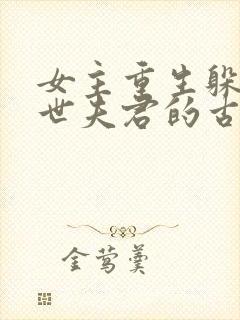 女主重生躲
世夫君的古
金莺羹